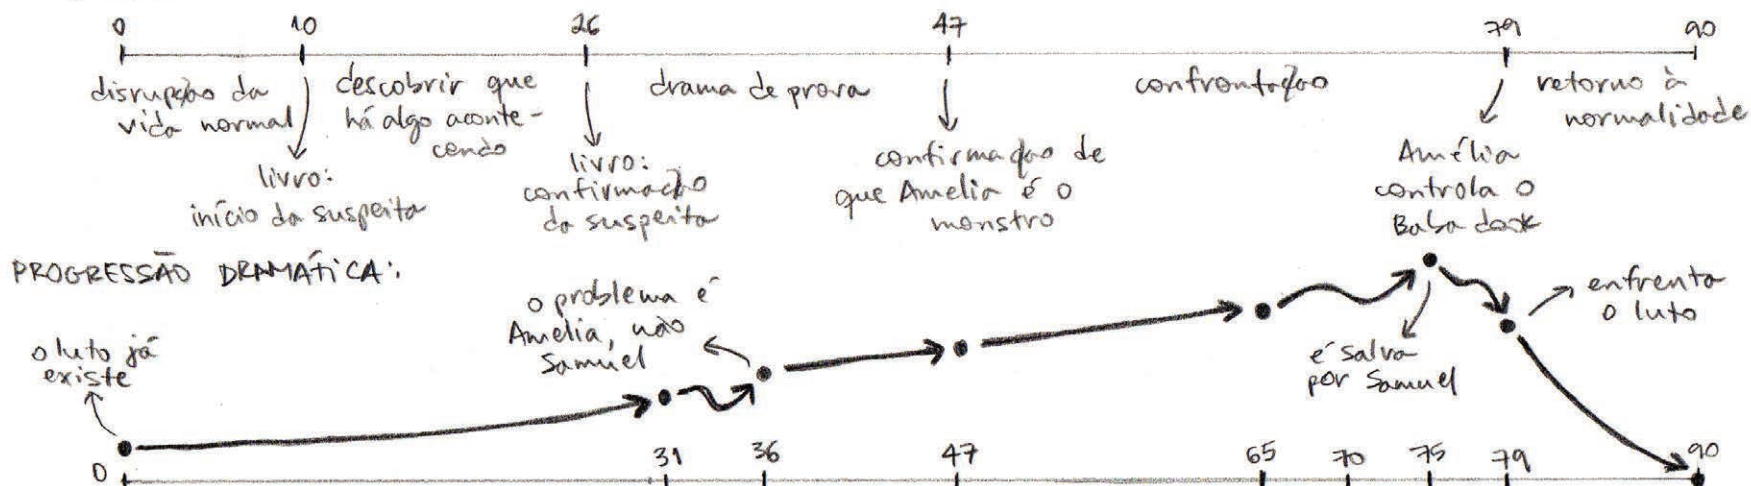 0 10 26 47 79 90
disrupção da
vida normal
descobrir que
há algo aconte-
cendo
drama de prova
confrontação
retorno à
normalidade
livro:
início da suspeita
livro:
confirmação
da suspeita
confirmação de
que Amelia é o
monstro
Amélia
controla o
Babadook
PROGRESSÃO DRAMÁTICA:
o luto já
existe
o problema é
Amelia, não
Samuel
é salva
por Samuel
enfrenta
o luto
0 31 36 47 65 70 75 79 90